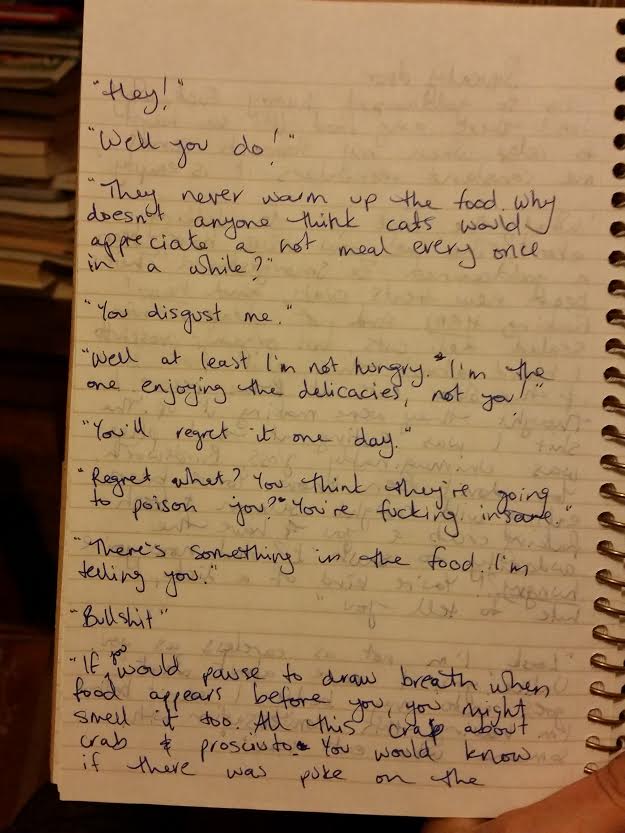 "Hey!"
"Well you do!"
"They never warm up the food. Why
doesn't anyone think cats would
appreciate a hot meal every once
in a while?"
"You disgust me."
"Well at least I'm not hungry. I'm the
one enjoying the delicacies, not you!"
"You'll regret it one day."
"Regret what? You think they're going
to poison you? You're fucking insane."
"There's something in the food. I'm
telling you."
"Bullshit"
"If you would pause to draw breath when
food appears before you, you might
smell it too. All this crap about
crab & prosciuto. You would know
if there was puke on the